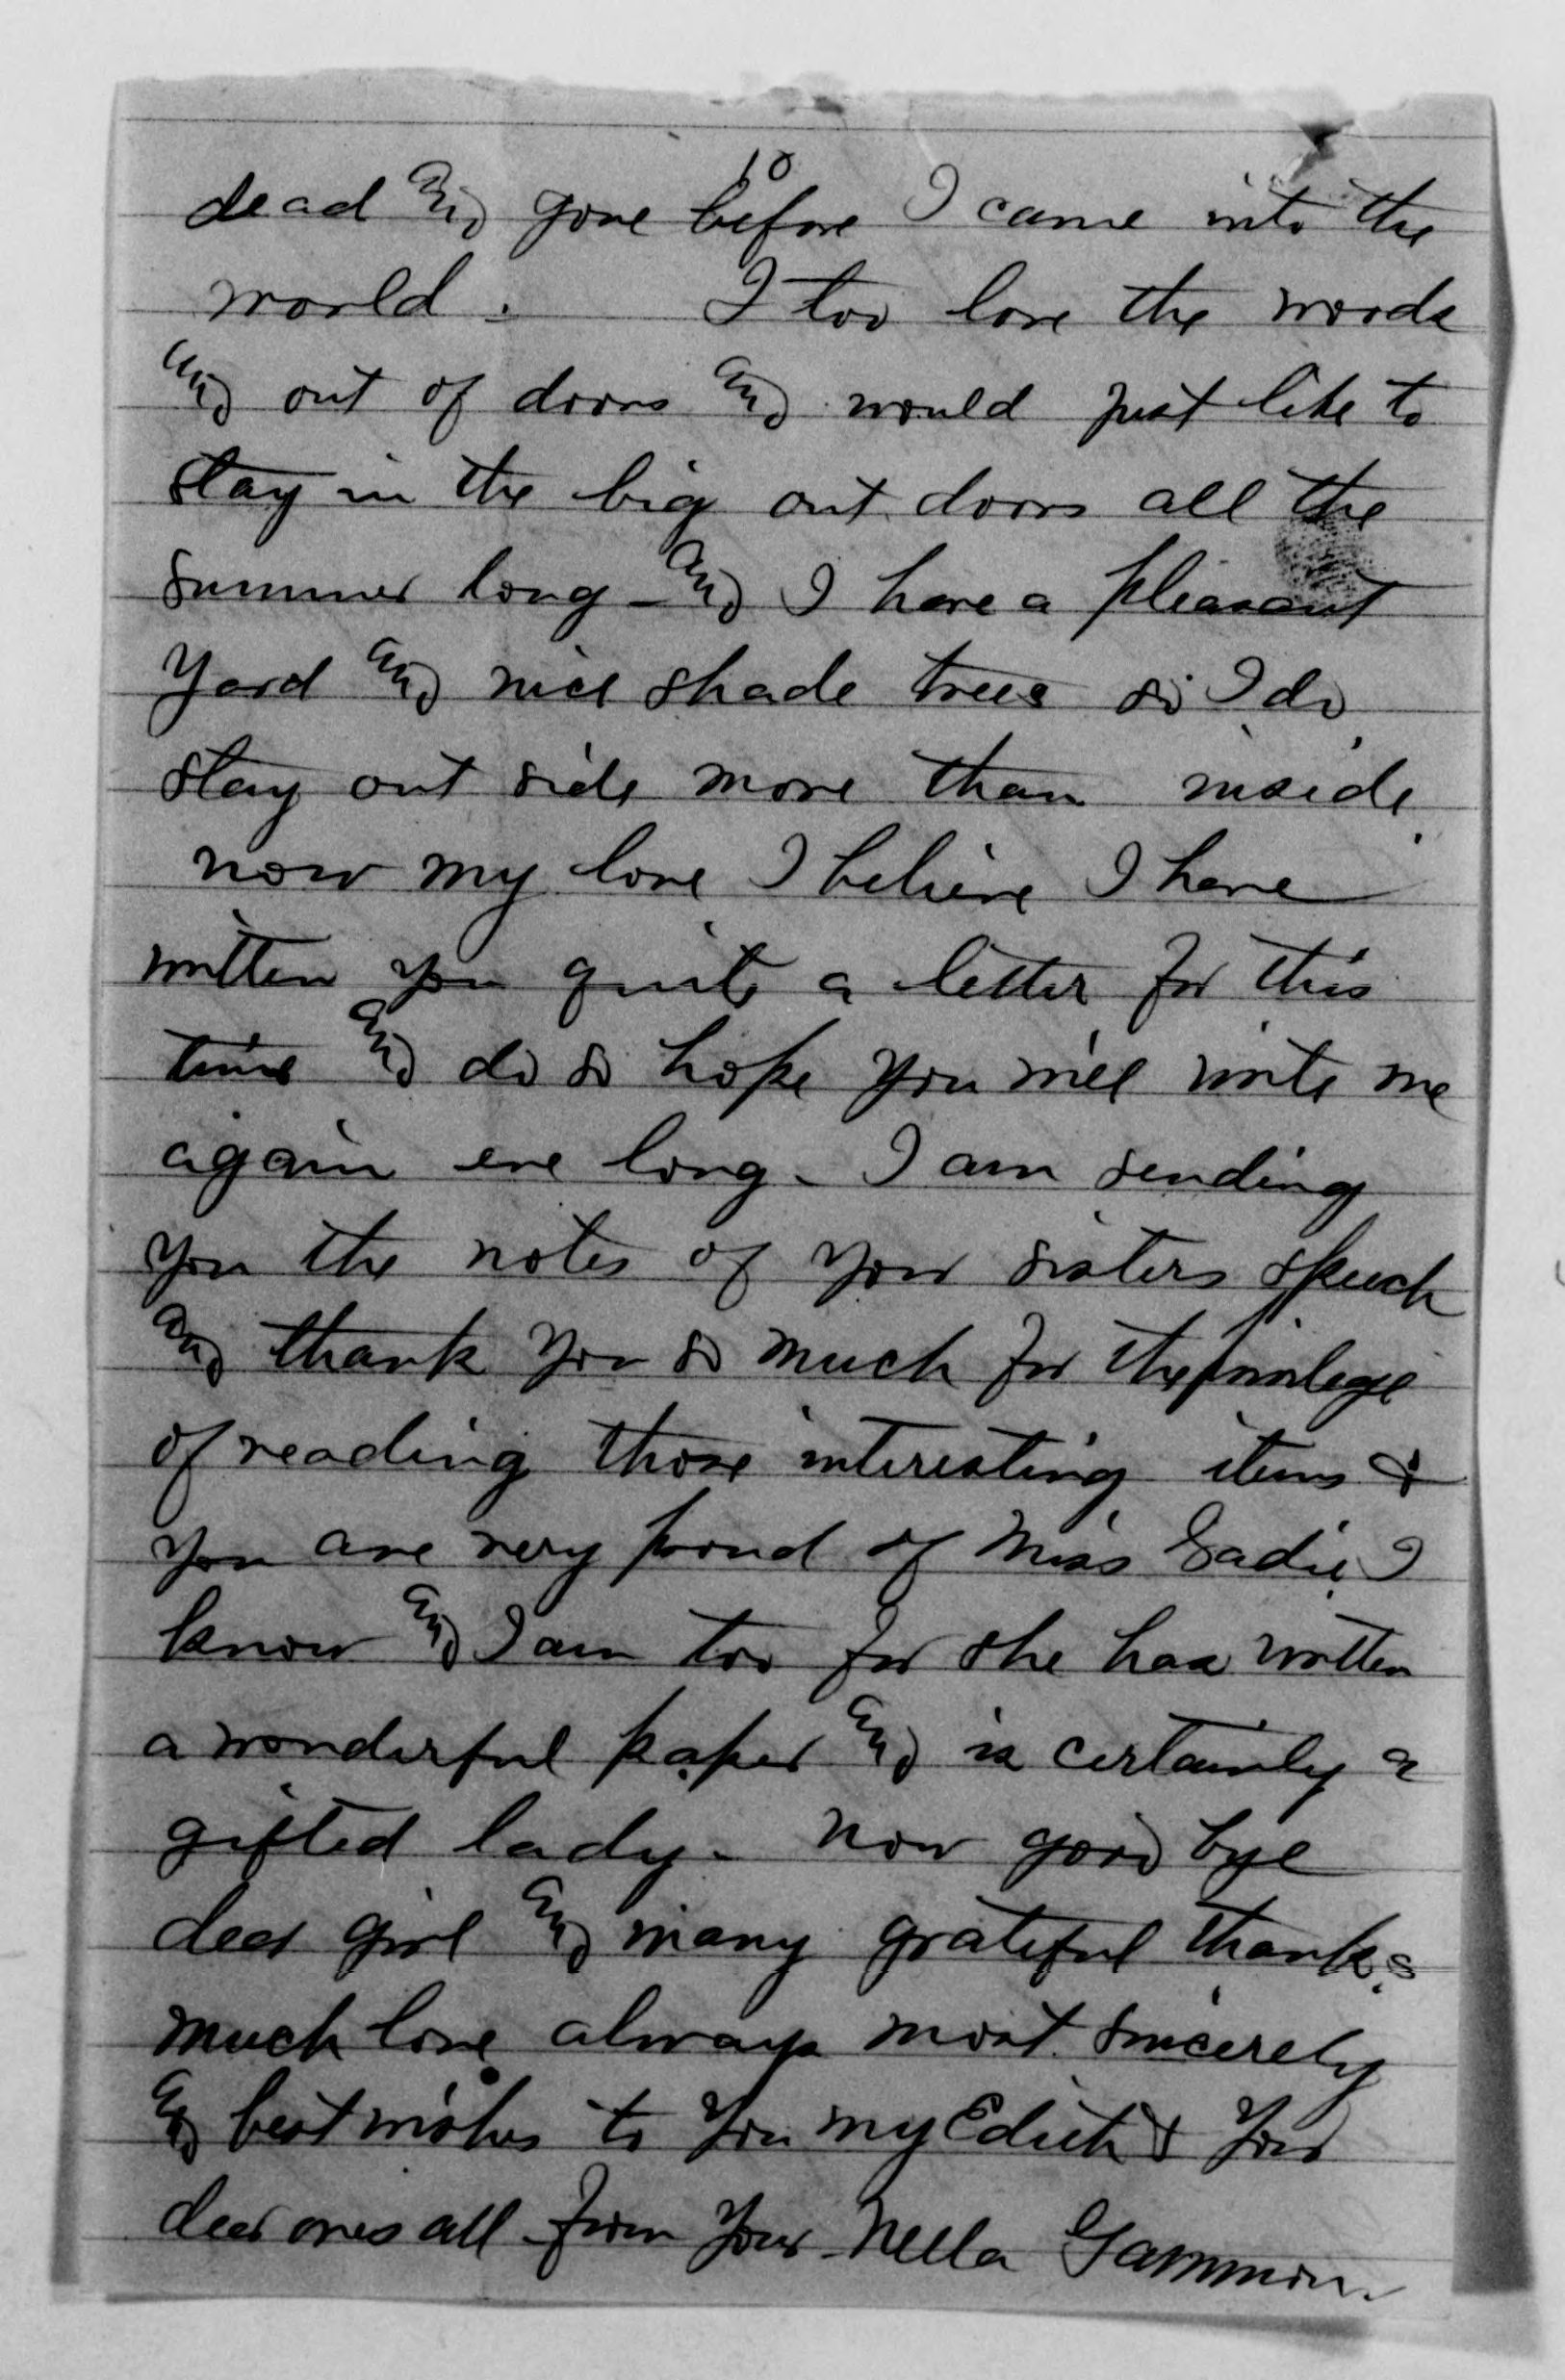 10
dead and gone before I came into the
world. I too love the woods
and out of doors and would just like to
stay in the big out doors all the
summer long - and I have a pleasant
yard and nice shade trees so I do
stay out side more than inside.
now my love I believe I have
written you quite a letter for this
time and do so hope you will write me
again ere long - I am sending
you the notes of your sisters speech
and thank you so much for the privilege
of reading those interesting items &
you are very proud of Miss Sadie I
know and I am too for she has written
a wonderful paper and is certainly a
gifted lady - now good bye
dear girl and many grateful thanks
much love always most sincerely
and best wishes to you my Edith & your
dear ones all from your Nella Gammon.